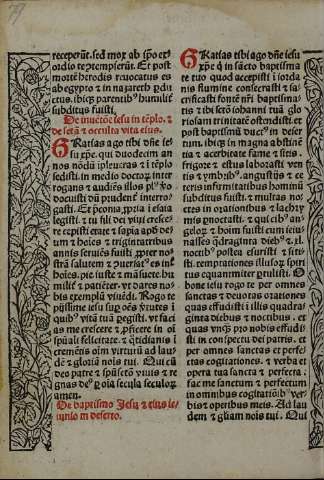 receperūt. sed mox ab ipo ex⸗
ordio te ꝯtempserūt. Et post
mortē herodis reuocatus es
ab egypto ⁊ in nazareth ꝓdu
ctus. ibiqꝫ parentibꝰ humilit̄
subditus fuisti.
De inuētōe iesu in tēplo. ⁊
de setā ⁊ occulta vita eius.
GRatias ago tibi dn̄e ie⸗
su xp̄e. qui duodecim an
nos nodū ipleueras ⁊ i tēplo
sedisti. in medio doctorū inter
rogans ⁊ audiēs illos
docuisti dū prudent̄ interro⸗
gasti. Et
legisti. ⁊ tu fili dei viui cresce⸗
re cepisti etate ⁊ sapia apd deū
um ⁊ hoīes ⁊ trigintatribus
annis seruēs fuisti. ꝓpter nos
strā salutem ⁊ in
hoīes. pie. iuste ⁊ māsuete. hu
milit̄ ⁊ patiēter. vt dares no⸗
bis exemplū viuēdi. Rogo te
piissime iesu
quibꝰ vitā tuā vt faci
as me crescere ⁊ ꝓficere in oī
spūali felicitate. ⁊ q̄tidianis i
cremētis oīm virtutū ad lau⸗
dē ⁊ gloriā nois tui. Qui cū
deo patre ⁊ spūsctō viuis ⁊ re
gnas deꝰ ꝑ oīa secula seculoꝝ
amen.
De baptismo Jesu ⁊ eius ie⸗
iunio in deserto.
GRatias tibi ago dn̄e iesu
xp̄e ꝙ in sācto baptisma
te tuo quod accepisti i iorda
nis flumine consecrasti ⁊ sa⸗
crificasti fontē nr̄i baptisma⸗
tis ⁊ ibi serō iohanni tuā glo
riosam trinitatē ostendisti. et
post baptismū ductꝰ in deser⸗
tum. ibiqꝫ in magna abstinē
tia ⁊ acerbitate fame ⁊ sitis.
frigore ⁊ estus laborasti ven
tis ⁊ ymbribꝰ. angustijs ⁊ ce
teris infirmitatibus hominū
subditus fuisti. ⁊ multas no⸗
ctes in orationibus ⁊ lachry
mis ꝑnoctasti. ⁊ qui cibꝰ an⸗
geloꝝ ⁊ hoīm fuisti cum ieiu
nasses q̄draginta diebꝰ ⁊ .xl.
noctibꝰ postea esuristi ⁊ siti⸗
sti. temptationes illusoꝝ spiri
tus equanimiter ꝑtulisti. O
bone iesu rogo te per omnes
sanctas ⁊ deuotas orationes
quas effudisti i illis quadra⸗
ginta diebus ⁊ noctibus. et
quas vnqꝫ pro nobis effudi⸗
sti in conspectu dei patris. et
per omnes sanctas et perfec⸗
tas cogitationes. ⁊ verba et
opera tua sancta ⁊ perfecta.
fac me sanctum ⁊ perfectum
in omnibus cogitatiōibꝰ ver⸗
bis ⁊ operibus meis. Ad lau
dem ⁊ gliam nois tui. Qui